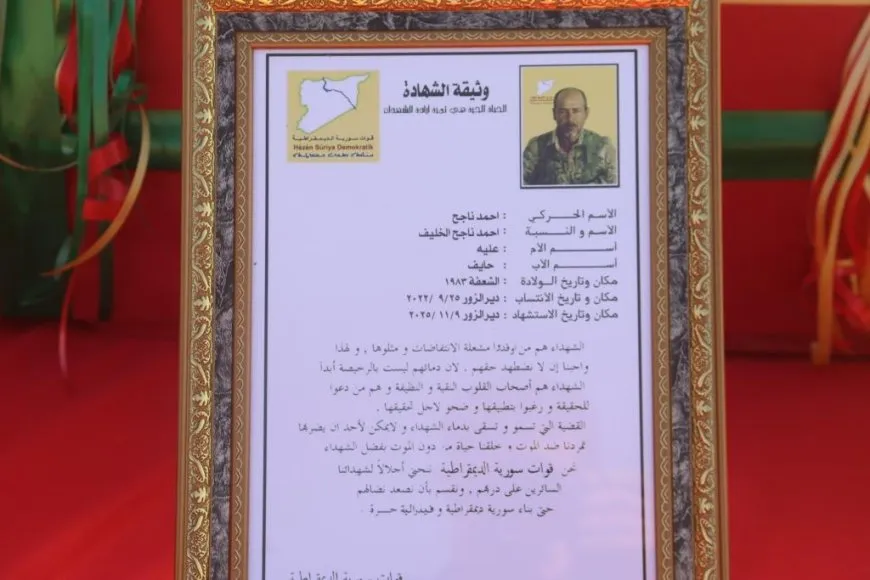 وثيقة الشهادة
الحياة الحرة هي ثمرة ارادة الشهيدان
قوات سورية الديمقراطية
Hêzên Sûriya Demokratîk
الاسم الحركي : احمد ناجح
الاسم و النسبة : احمد ناجح الخليف
اسم الام : عليه
اسم الاب : حايف
مكان وتاريخ الولادة : الشعفة ١٩٨٣
مكان و تاريخ الانتساب : ديرالزور ٢٥/ ٩ /٢٠٢٢
مكان وتاريخ الاستشهاد : ديرالزور ١١/٩/ ٢٠٢٥
الشهداء هم من اوقدوا مشعلة الانتفاضات و مثلوها , و لهذا
واجبنا إن لا نضطهد حقهم , لان دمائهم ليست بالرخيصة أبداً
الشهداء هم أصحاب القلوب النقية و النظيفة و هم من دعوا
للحقيقة و رغبوا بتطبيقها و ضحو لاجل تحقيقها .
القضية التي تسمو و تسقى بدماء الشهداء و لايمكن لأحد ان يضرها
تمردنا ضد الموت و خلقنا حياة من دون الموت بفضل الشهداء
نحن قوات سورية الديمقراطية ننحني أجلالاً لشهدائنا
السائرين على دربهم , ونقسم بأن نصعد نضالهم
حتى بناء سورية ديمقراطية و فيدرالية حرة .
قوات سورية الديمقراطية